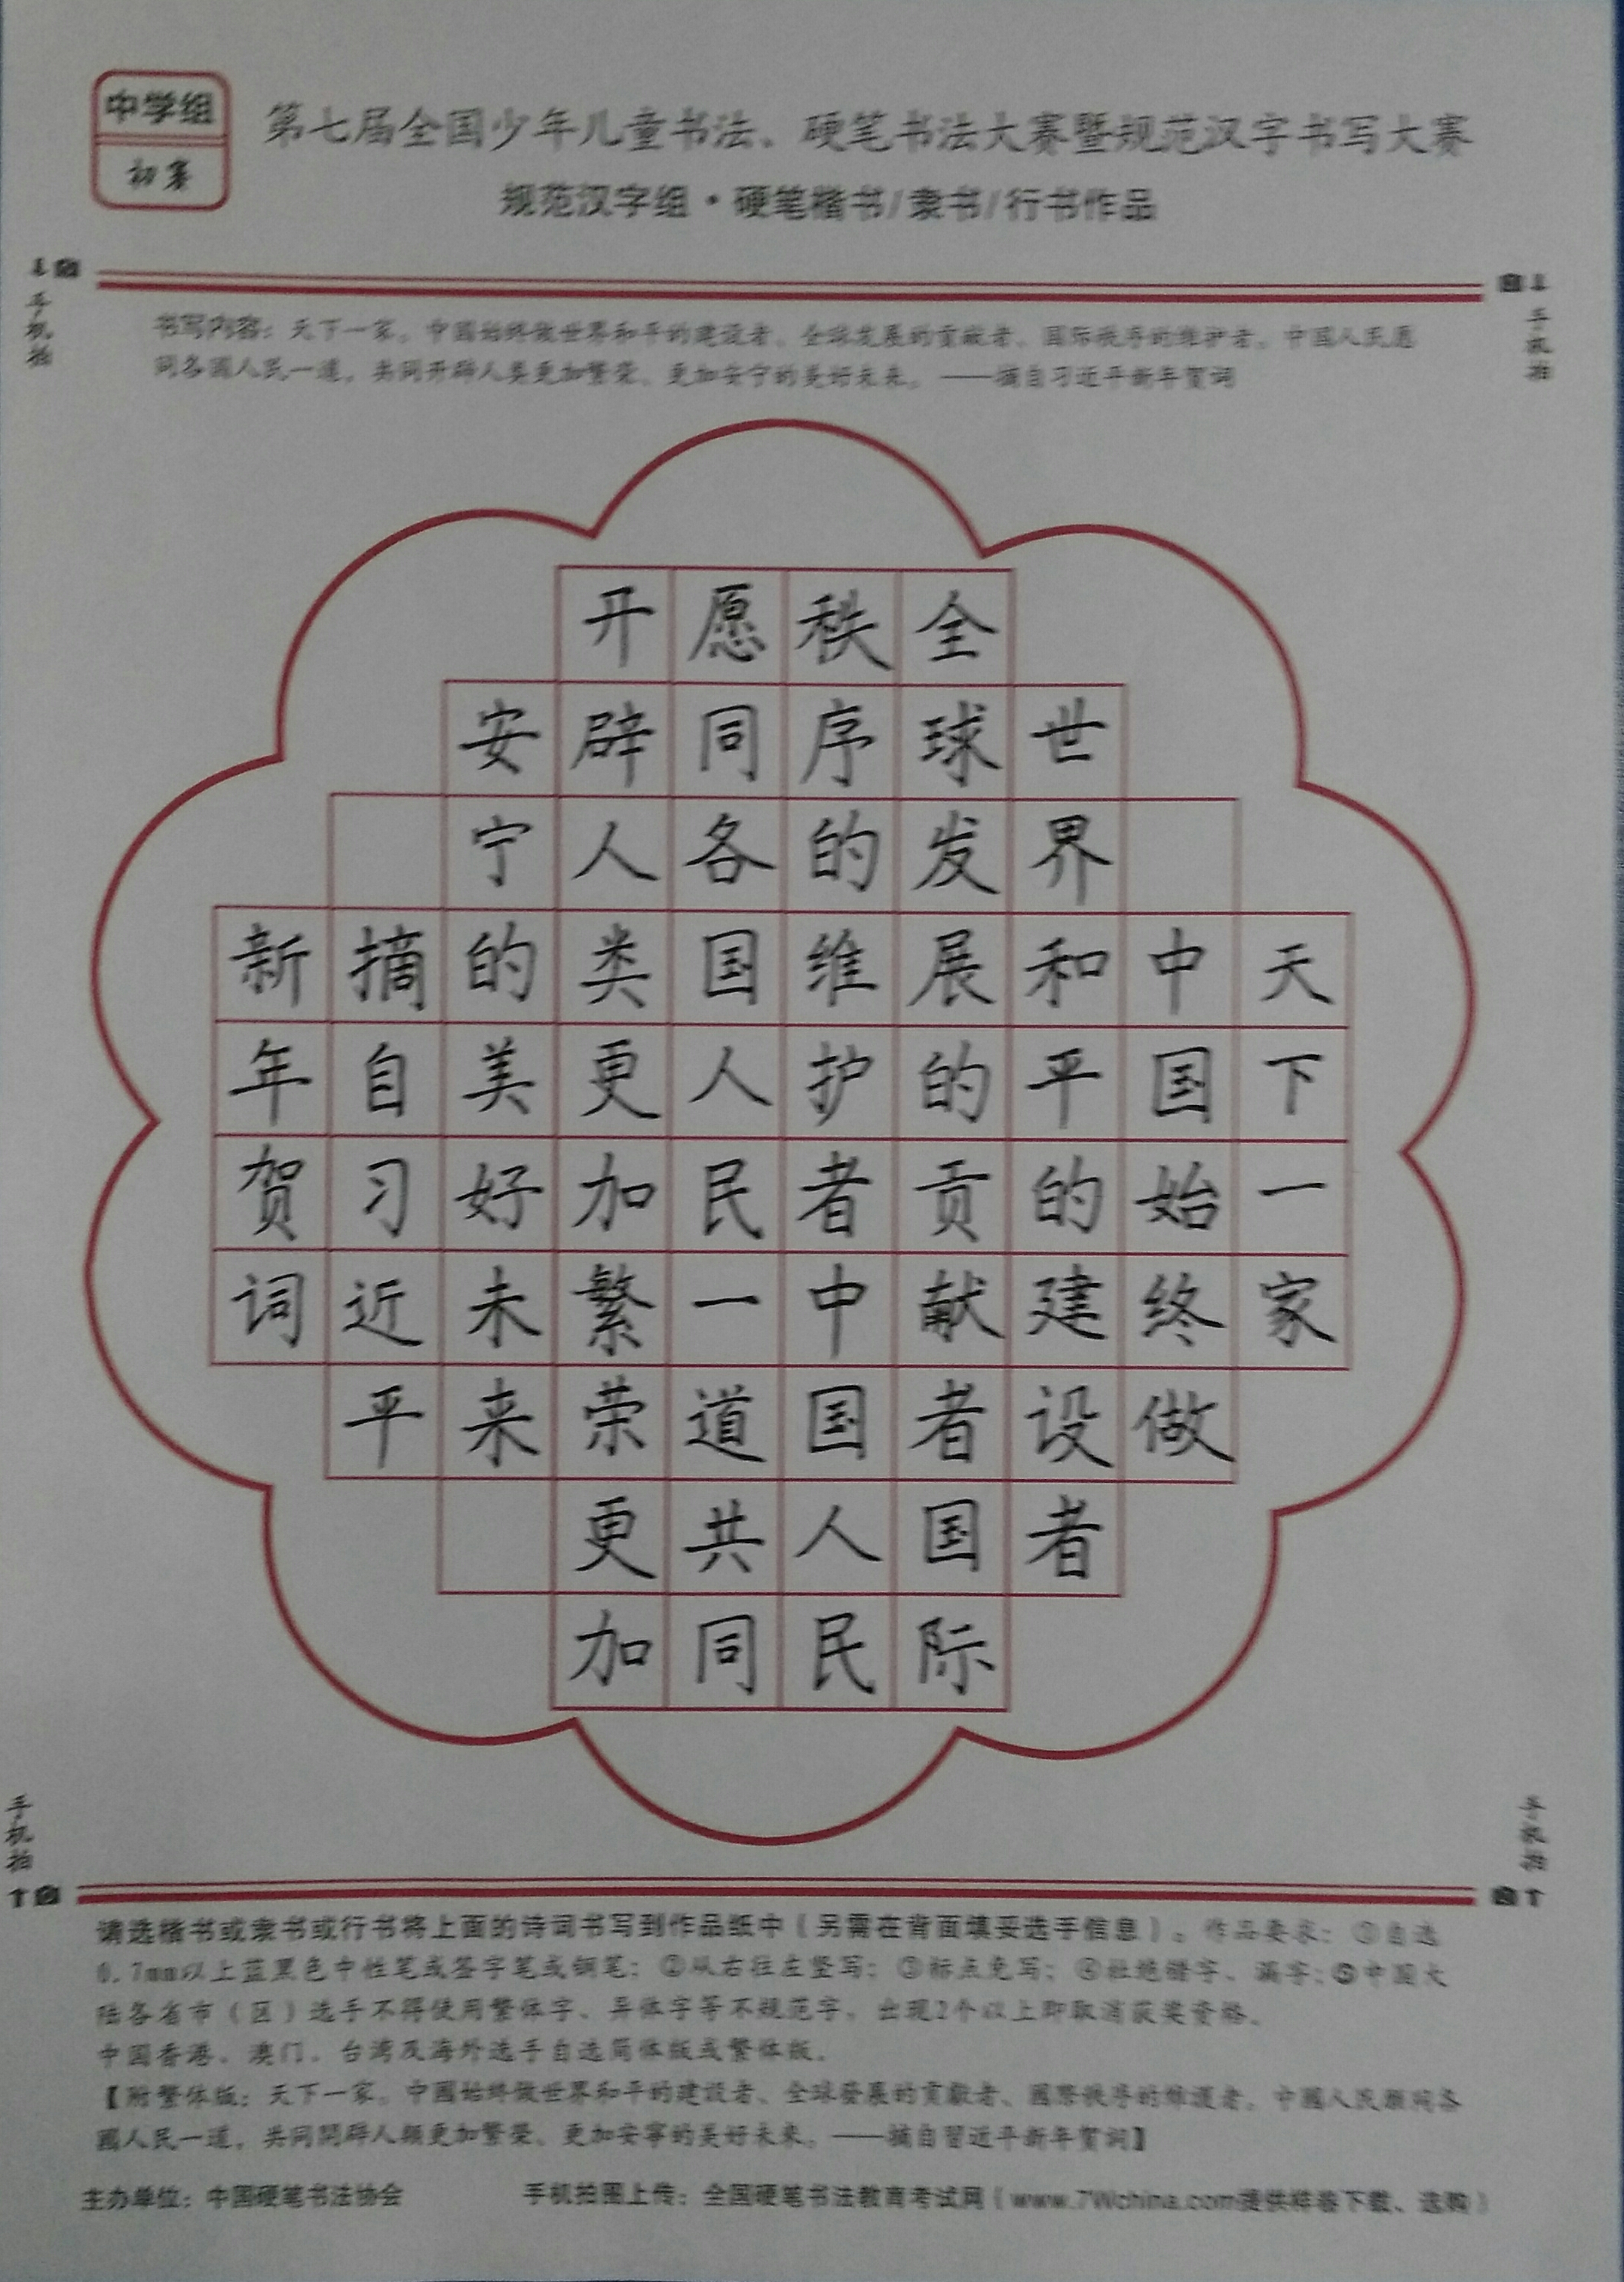 中学组
初赛
第七届全国少年儿童书法、硬笔书法大赛暨规范汉字书写大赛
规范汉字组·硬笔楷书/隶书/行书作品
手机拍
手机拍
书写内容：天下一家。中国始终做世界和平的建设者、全球发展的贡献者、国际秩序的维护者。中国人民愿
同各国人民一道，共同开辟人类更加繁荣、更加安宁的美好未来。——摘自习近平新年贺词
天下一家
中国始终做
世界和平的建设者
全球发展的贡献者国际
秩序的维护者中国人民
愿同各国人民一道共同
开辟人类更加繁荣更加
安宁的美好未来
摘自习近平
新年贺词
手机拍
手机拍
请选楷书或隶书或行书将上面的诗词书写到作品纸中（另需在背面填妥选手信息）。作品要求：①自选
0.7mm以上蓝黑色中性笔或签字笔或钢笔；②从右往左竖写；③标点免写；④杜绝错字、漏字；⑤中国大
陆各省市（区）选手不得使用繁体字、异体字等不规范字，出现2个以上即取消获奖资格。
中国香港、澳门、台湾及海外选手自选简体版或繁体版。
【附繁体版：天下一家。中國始終做世界和平的建設者、全球發展的貢獻者、國際秩序的維護者。中國人民願同各
國人民一道，共同開辟人類更加繁榮、更加安寧的美好未來。——摘自習近平新年賀詞】
主办单位：中国硬笔书法协会
手机拍图上传：全国硬笔书法教育考试网（www.7Wchina.com提供样卷下载、选购）